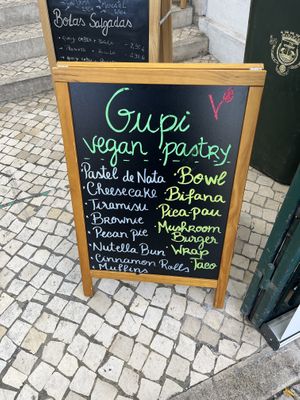 Bolas Salgadas
Gupi
V
vegan pastry
Pastel de Nata
· Cheesecake
· Tiramisu
· Brownie
· Pecan pie
· Nutella Bun
· Cinnamon Rolls
· Muffins
· Bowl
· Bifana
· Pica-pau
· Mushroom
Burger
· Wrap
· Taco